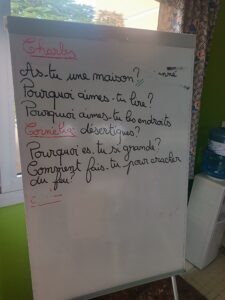 Charles
As-tu une maison?
Pourquoi aimes-tu lire?
Pourquoi aimes-tu les endroits
désertiques?
Cornélia
Pourquoi es-tu si grande?
Comment fais-tu pour cracher
du feu?